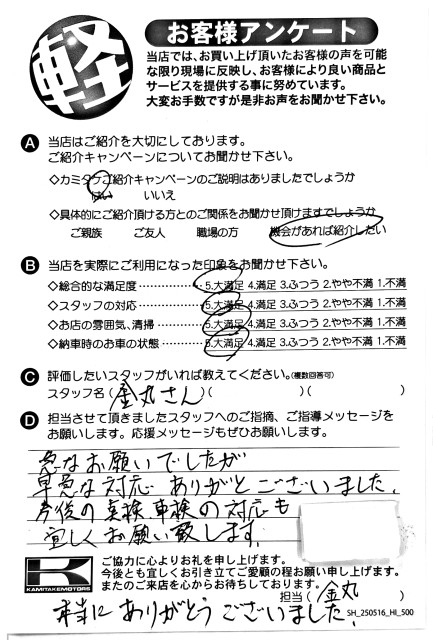 軽
お客様アンケート
当店では、お買い上げ頂いたお客様の声を可能
な限り現場に反映し、お客様により良い商品と
サービスを提供する事に努めています。
大変お手数ですが是非お声をお聞かせ下さい。
A 当店はご紹介を大切にしております。
ご紹介キャンペーンについてお聞かせ下さい。
◇カミタケご紹介キャンペーンのご説明はありましたでしょうか
はい いいえ
◇具体的にご紹介頂ける方とのご関係をお聞かせ頂けますでしょうか
ご親族 ご友人 職場の方 機会があれば紹介したい
B 当店を実際にご利用になった印象をお聞かせ下さい。
◇総合的な満足度 5.大満足 4.満足 3.ふつう 2.やや不満 1.不満
◇スタッフの対応 5.大満足 4.満足 3.ふつう 2.やや不満 1.不満
◇お店の雰囲気、清掃 5.大満足 4.満足 3.ふつう 2.やや不満 1.不満
◇納車時のお車の状態 5.大満足 4.満足 3.ふつう 2.やや不満 1.不満
C 評価したいスタッフがいれば教えてください。(複数回答可)
スタッフ名(金丸さん)( )( )
D 担当させて頂きましたスタッフへのご指摘、ご指導メッセージを
お願いします。応援メッセージもぜひお願いします。
急なお願いでしたが
早急な対応 ありがとうございました。
今後の 車検の対応も
宜しくお願い致します。
K
KAMITAKEMOTORS
ご協力に心よりお礼を申し上げます。
今後とも宜しくお引き立てご愛顧の程お願い申し上げます。
またのご来店を心からお待ちしております。
担当(金丸)
本当にありがとうございました。
SH_250516_HI_500